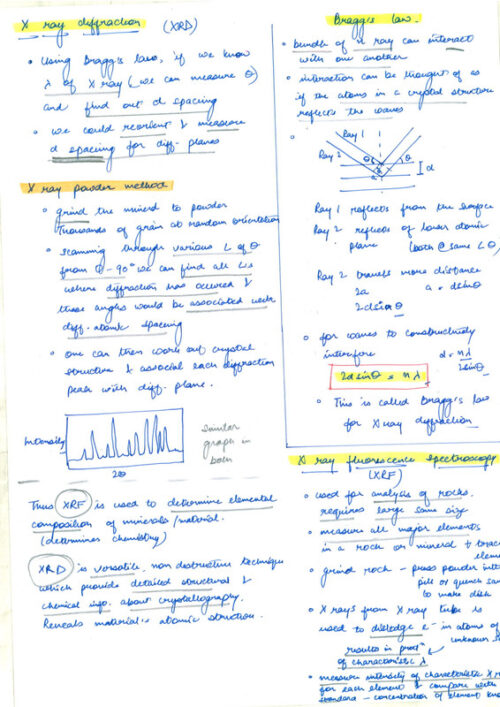 X ray diffraction (XRD)
• Using Bragg's law, if we know
λ of X ray (we can measure θ)
and find out d spacing
• we could reorient & measure
d spacing for diff. planes
X ray powder method
• grind the mineral to powder
thousands of grain at random orientation
• scanning through various L of θ
from 0 - 90° we can find all L's
where diffraction has occured &
these angles would be associated with
diff. atomic spacing
• one can then work out crystal
structure & associat each diffraction
peak with diff. plane.
Intensity
2θ
Similar
graph in
both
Thus XRF is used to determine elemental
composition of minerals/material.
(determines chemistry)
XRD is versatile, non destructive technique
which provide detailed structural &
chemical info. about crystallography.
Reveals material's atomic structure.
Bragg's law.
• bundle of X ray can interact
with one another
• interaction can be thought of as
if the atoms in a crystal structure
reflects the waves
Ray 1
Ray 2
θ
θ
a
d
Ray 1 reflects from the surface
Ray 2 reflects of lower atomic
plane (both @ same L θ)
Ray 2 travels more distance
2a a = d sinθ
2d sin θ
• for waves to constructively
interfere d = nλ
2 sinθ
2d sinθ = n λ
• This is called Bragg's law
for X ray diffraction
X ray fluorescence spectroscopy
(XRF)
• used for analysis of rocks.
requires large sam size
• measure all major elements
in a rock or mineral & trace
eleme
• grind rock - press powder into
pill or quench sam
to make disk
• X rays from X ray tube is
used to dislodge e- in atoms of
unknown s
results in prodn
of characteristic λ
• measure intensity of characteristic X r
for each element & compare with
standard - concentration of element kn